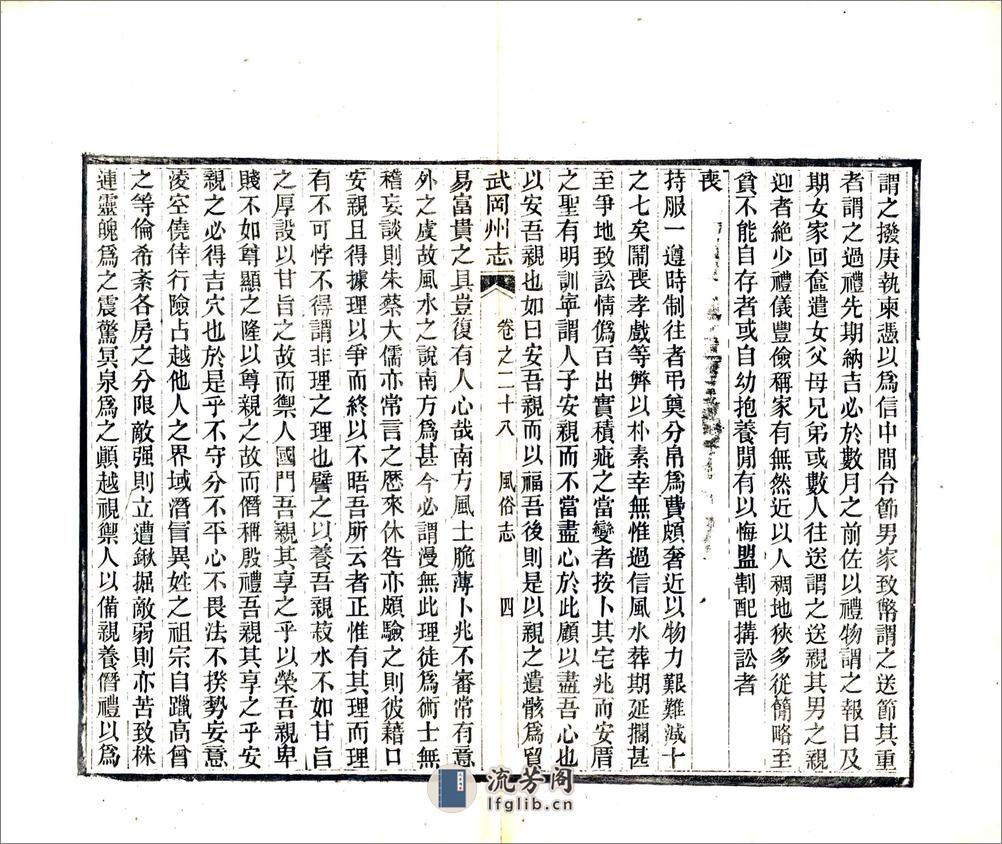 謂之撥庚執柬憑以爲信中間令節男家致幣謂之送節其重
者謂之過禮先期納吉必於數月之前佐以禮物謂之報日及
期女家回奩遣女父母兄弟或數人往送謂之送親其男之親
迎者絶少禮儀豐儉稱家有無然近以人稠地狹多從簡略至
貧不能自存者或自幼抱養閒有以悔盟割配搆訟者
喪
持服一遵時制往者弔奠分帛爲費頗奢近以物力艱難減十
之七矣鬧喪孝戲等弊以朴素幸無惟過信風水葬期延擱甚
至爭地致訟情僞百出實積疵之當變者按卜其宅兆而安厝
之聖有明訓寧謂人子安親而不當盡心於此顧以盡吾心也
以安吾親也如曰安吾親而以福吾後則是以親之遺骸爲貿
武岡州志 卷之二十八 風俗志 四
易富貴之具豈復有人心哉南方風土脆薄卜兆不審常有意
外之虞故風水之說南方爲甚今必謂漫無此理徒爲術士無
稽妄談則朱蔡大儒亦常言之歷來休咎亦頗驗之則彼藉口
安親且得據理以爭而終以不晤吾所云者正惟有其理而理
有不可悖不得謂非理之理也譬之以養吾親菽水不如甘旨
之厚設以甘旨之故而禦人國門吾親其享之乎以榮吾親卑
賤不如尊顯之隆以尊親之故而僭稱殷禮吾親其享之乎安
親之必得吉穴也於是乎不守分不平心不畏法不揆勢妄意
淩空僥倖行險占越他人之界域潛冒異姓之祖宗自躐高曾
之等倫希紊各房之分限敵强則立遭鍬掘敵弱則亦苦致株
連靈魄爲之震驚冥泉爲之顚越視禦人以備親養僭禮以爲
流芳阁
lfglib.cn